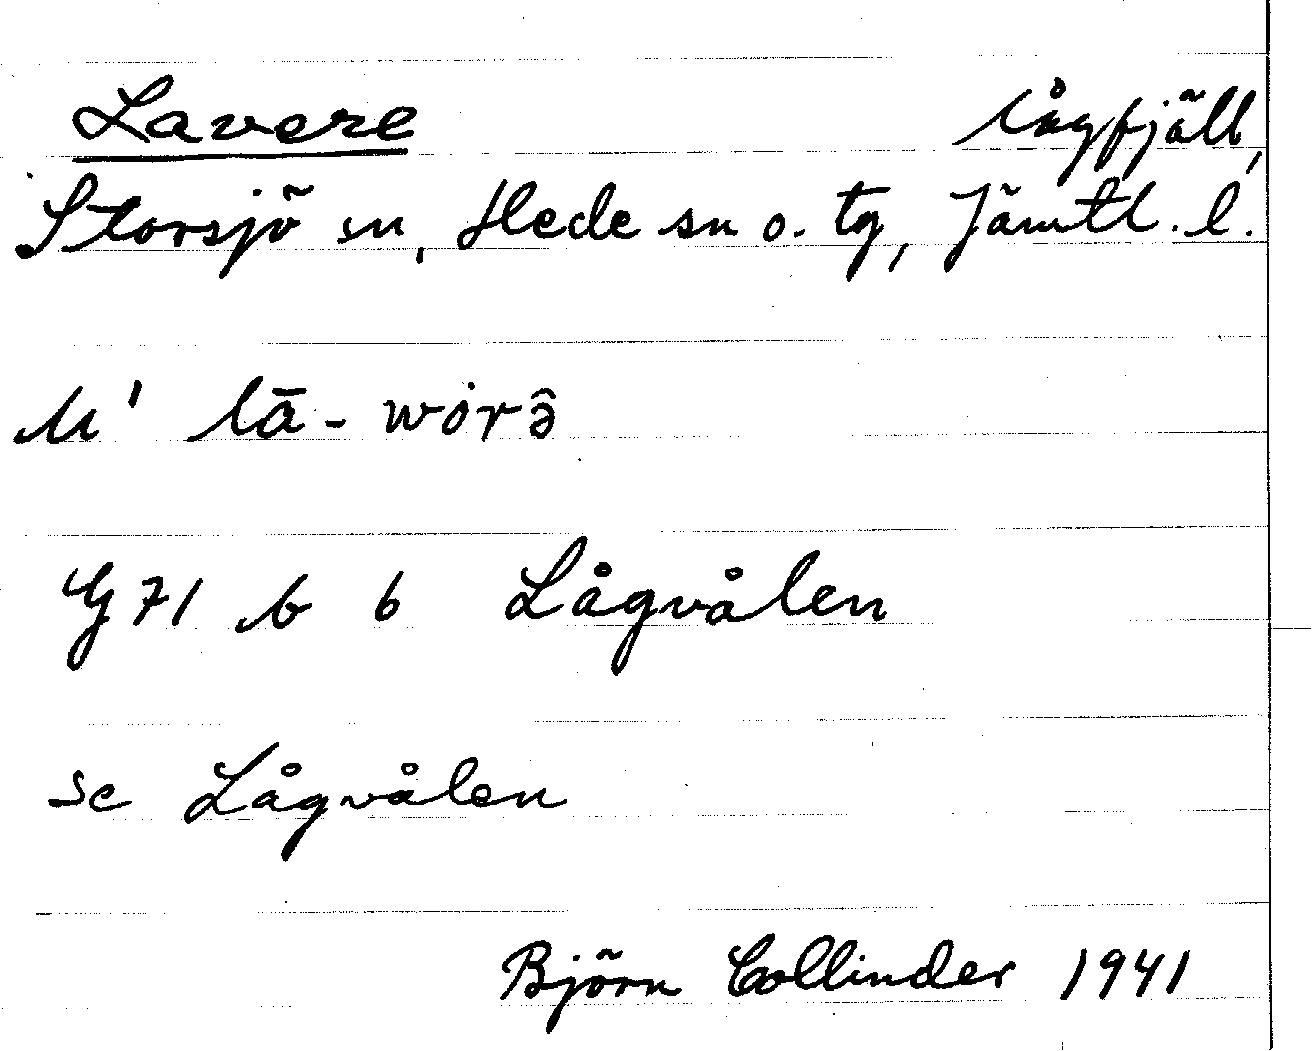 Lavere lågfjäll,
Storsjö sn, Hede sn o. tg, Jämtl. l.
U' lā- wȯrə̂
G 71 b 6 Lågvålen
se Lågvålen
Björn Collinder 1941